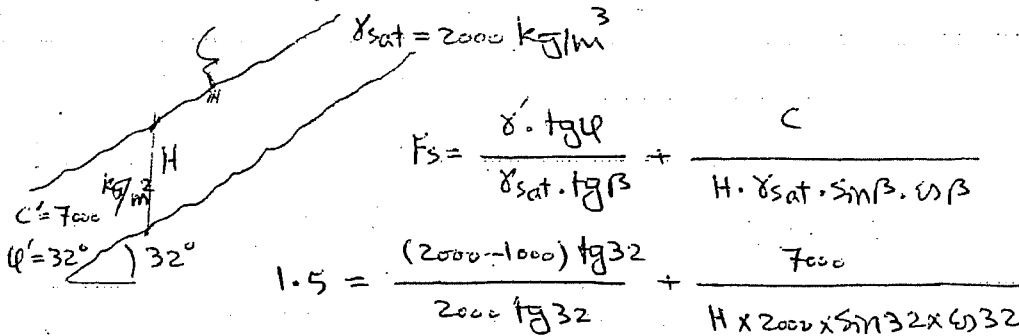 γsat = 2000 kg/m³
H
kg/m²
C' = 7000
φ' = 32°
32°
Fs = γ'. tgφ / γsat . tgβ + C / H. γsat . Sinβ. cosβ
1.5 = (2000-1000) tg32 / 2000 tg32 + 7000 / H x 2000 x Sin32 x cos32